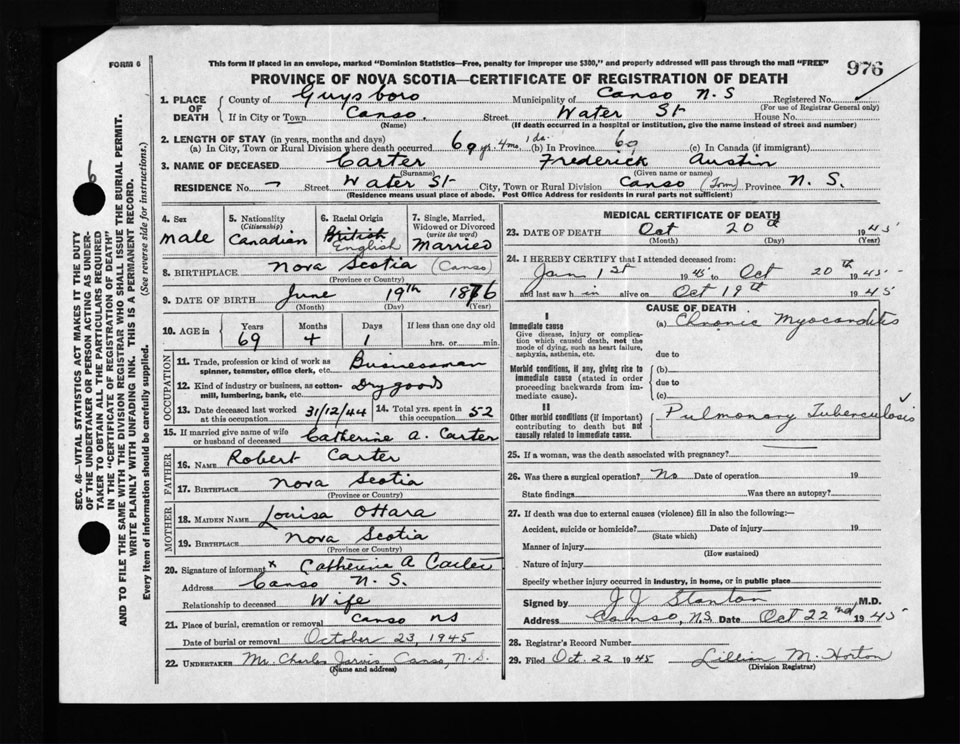 FORM 6
This form if placed in an envelope, marked "Dominion Statistics—Free, penalty for improper use $300," and properly addressed will pass through the mail "FREE"
976
PROVINCE OF NOVA SCOTIA—CERTIFICATE OF REGISTRATION OF DEATH
1. PLACE OF DEATH County of Guysboro Municipality of Canso N.S Registered No.
(For use of Registrar General only)
If in City or Town Canso. Street Water St House No.
(Name) (If death occurred in a hospital or institution, give the name instead of street and number)
2. LENGTH OF STAY (in years, months and days)
(a) In City, Town or Rural Division where death occurred 69 yr. 4 mo. 1 da. (b) In Province 69 (c) In Canada (if immigrant)
3. NAME OF DECEASED Carter Frederick Austin
(Surname) (Given name or names)
RESIDENCE No. — Street Water St City, Town or Rural Division Canso (Town) Province N. S.
(Residence means usual place of abode. Post Office Address for residents in rural parts not sufficient)
4. Sex Male
5. Nationality (Citizenship) Canadian
6. Racial Origin British English
7. Single, Married, Widowed or Divorced (write the word) Married
8. BIRTHPLACE Nova Scotia (Canso)
(Province or Country)
9. DATE OF BIRTH June 19th 1876
(Month) (Day) (Year)
10. AGE in Years Months Days If less than one day old
69 4 1 hrs. or min.
OCCUPATION
11. Trade, profession or kind of work as spinner, teamster, office clerk, etc. Businessman
12. Kind of industry or business, as cotton-mill, lumbering, bank, etc. Dry goods
13. Date deceased last worked at this occupation 31/12/44 14. Total yrs. spent in this occupation 52
15. If married give name of wife or husband of deceased Catherine A. Carter
FATHER
16. NAME Robert Carter
17. BIRTHPLACE Nova Scotia
(Province or Country)
MOTHER
18. MAIDEN NAME Louisa OHara
19. BIRTHPLACE Nova Scotia
(Province or Country)
20. Signature of informant x Catherine A Carter
Address Canso N. S.
Relationship to deceased Wife
21. Place of burial, cremation or removal Canso NS
Date of burial or removal October 23, 1945
22. UNDERTAKER Mr. Charles Jarvis Canso, N. S.
(Name and address)
MEDICAL CERTIFICATE OF DEATH
23. DATE OF DEATH Oct 20th 1945
(Month) (Day) (Year)
24. I HEREBY CERTIFY that I attended deceased from:
Jan 1st 1945 to Oct 20th 1945
and last saw h im alive on Oct 19th 1945
CAUSE OF DEATH
I
Immediate cause
Give disease, injury or complication which caused death, not the mode of dying, such as heart failure, asphyxia, asthenia, etc.
(a) Chronic Myocarditis
due to
Morbid conditions, if any, giving rise to immediate cause (stated in order proceeding backwards from immediate cause).
(b)
due to
(c)
II
Other morbid conditions (if important) contributing to death but not causally related to immediate cause.
Pulmonary Tuberculosis
25. If a woman, was the death associated with pregnancy?
26. Was there a surgical operation? No Date of operation 19
State findings Was there an autopsy?
27. If death was due to external causes (violence) fill in also the following:—
Accident, suicide or homicide? Date of injury 19
(State which)
Manner of injury
(How sustained)
Nature of injury
Specify whether injury occurred in industry, in home, or in public place
Signed by J J Stanton M.D.
Address Canso, N.S. Date Oct 22nd 1945
28. Registrar's Record Number
29. Filed Oct. 22 1945 Lillian M. Horton
(Division Registrar)
SEC. 46—VITAL STATISTICS ACT MAKES IT THE DUTY
OF THE UNDERTAKER OR PERSON ACTING AS UNDER-
TAKER TO OBTAIN ALL THE PARTICULARS REQUIRED
IN THE "CERTIFICATE OF REGISTRATION OF DEATH"
AND TO FILE THE SAME WITH THE DIVISION REGISTRAR WHO SHALL ISSUE THE BURIAL PERMIT.
WRITE PLAINLY WITH UNFADING INK. THIS IS A PERMANENT RECORD.
Every item of information should be carefully supplied. (See reverse side for instructions.)